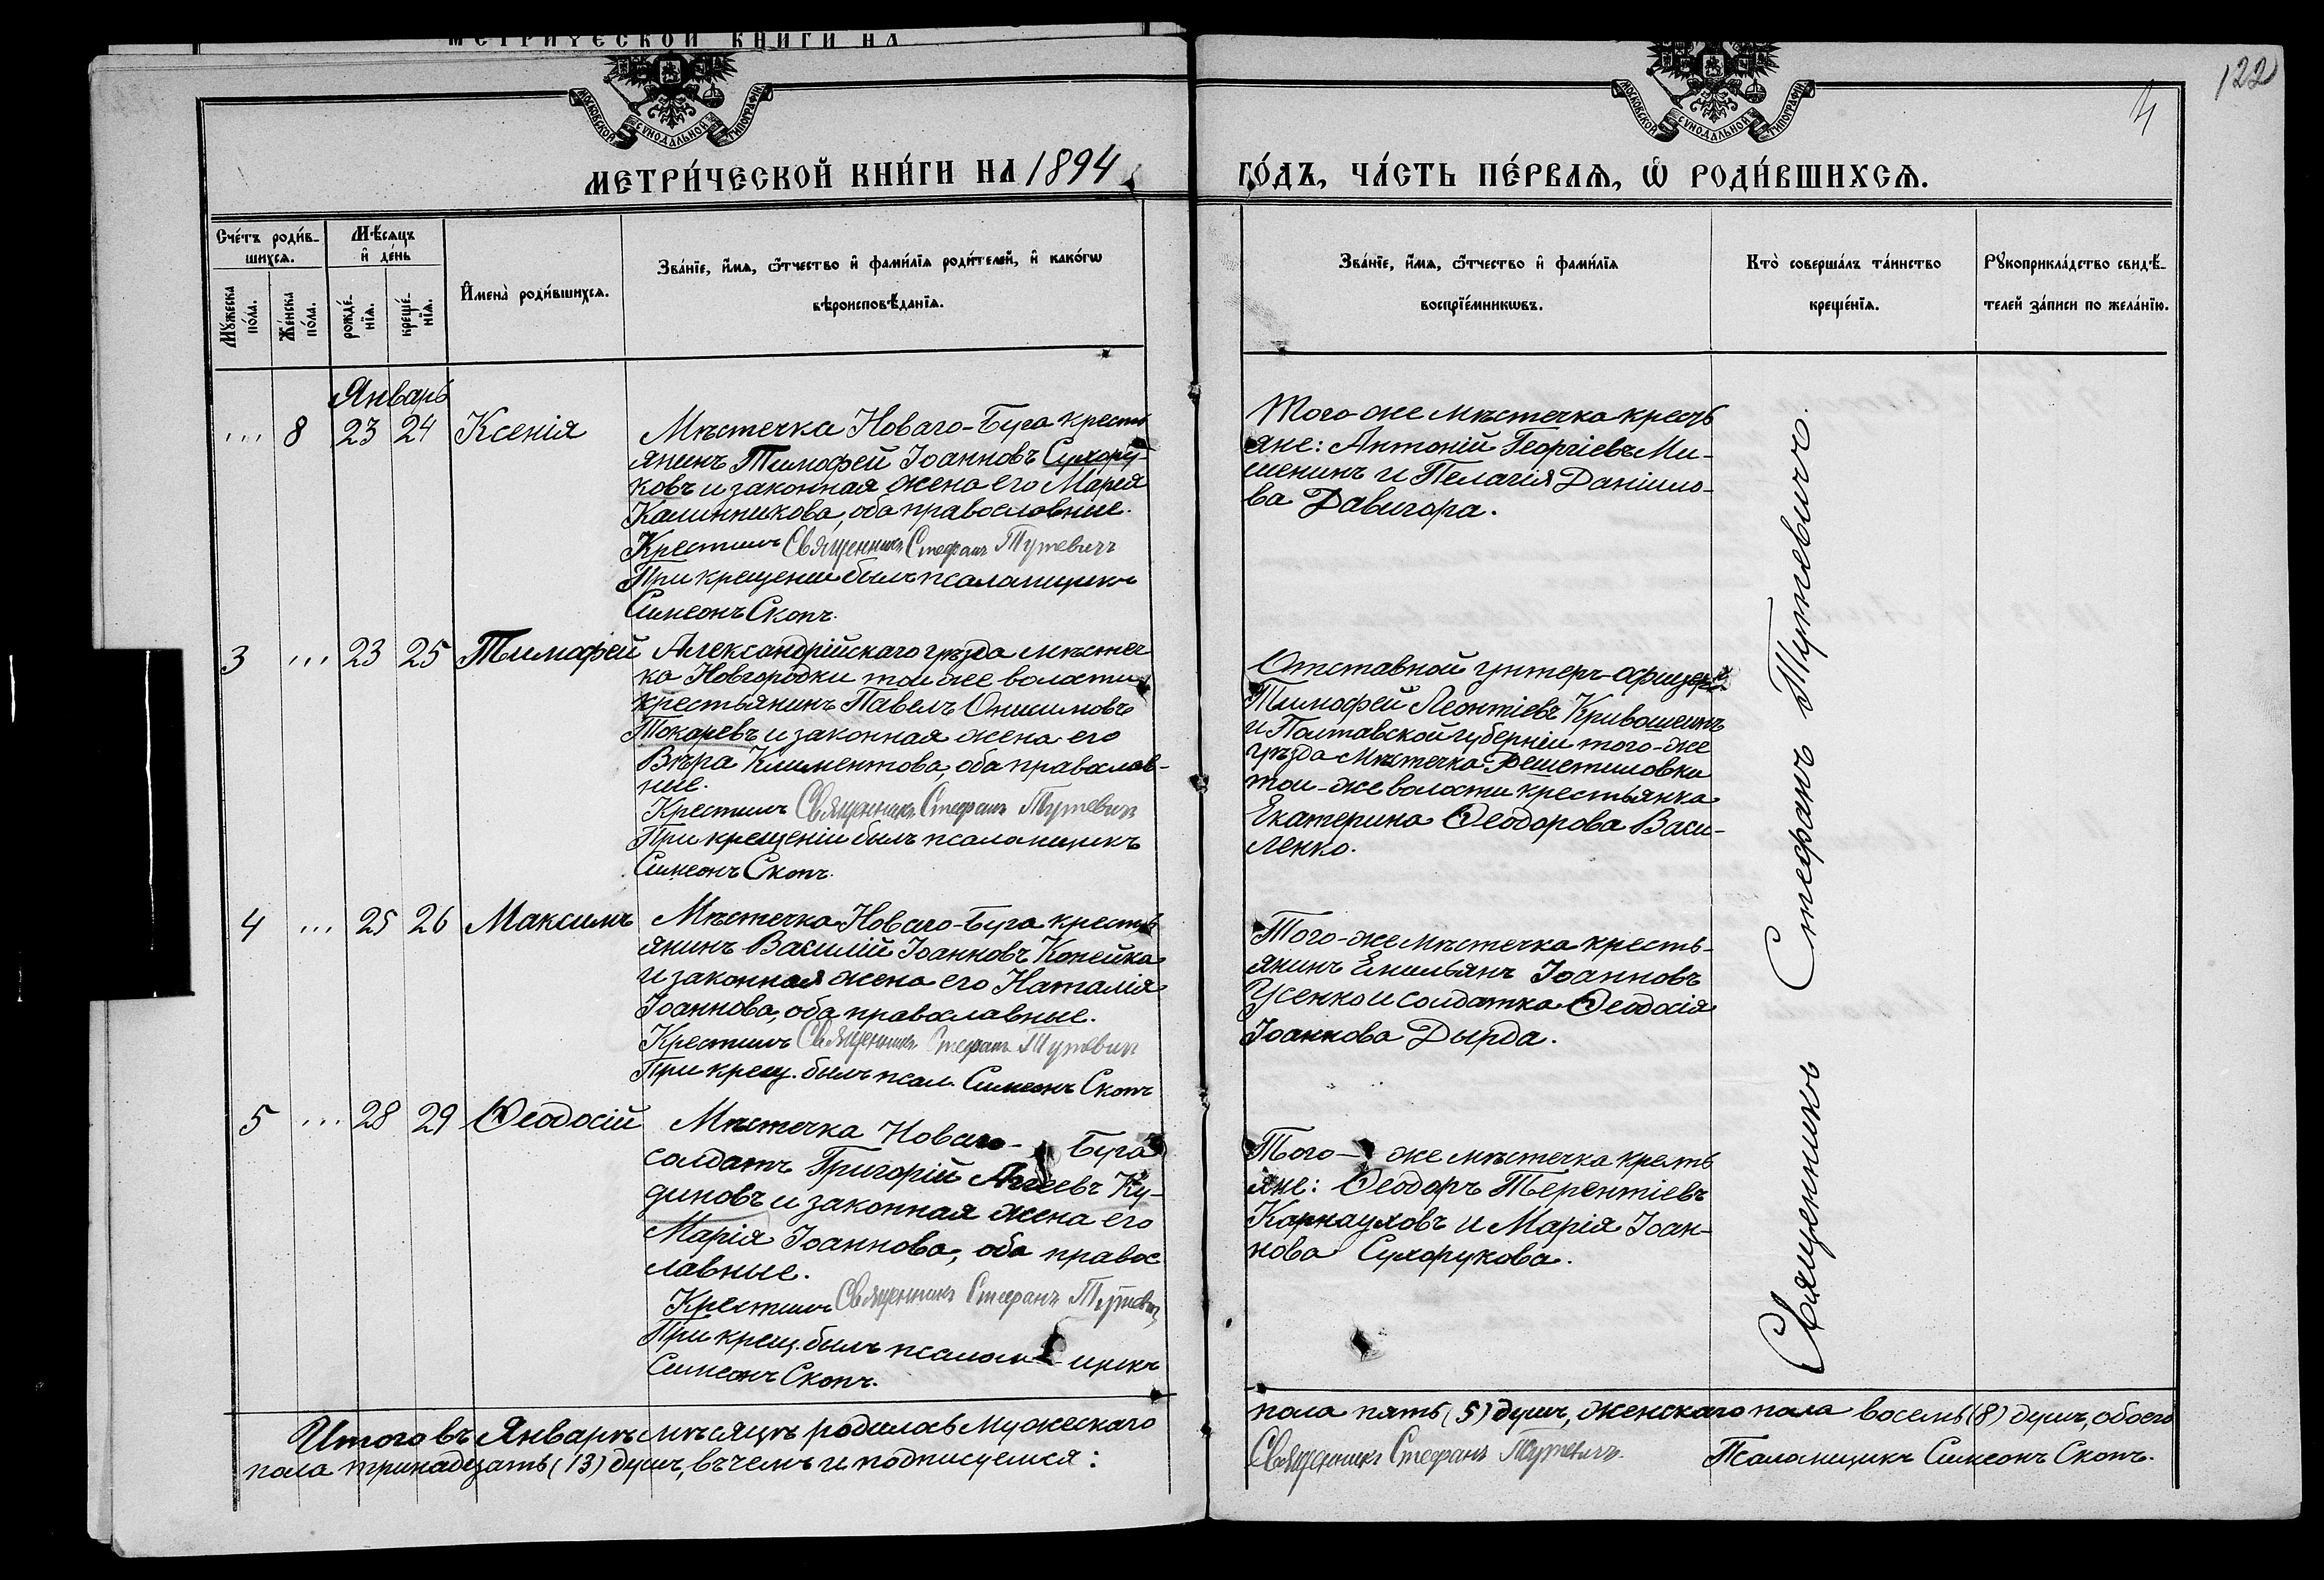 МЕТРИЧЕСКОЙ КНИГИ НА
МОСКОВСКОЙ СѴНОДАЛЬНОЙ ТИПОГРАФІИ
МОСКОВСКОЙ СѴНОДАЛЬНОЙ ТИПОГРАФІИ
122
4
МЕТРИ́ЧЕСКОЙ КНИ́ГИ НА 1894
ГО́ДЪ, ЧА́СТЬ ПЕ́РВАѦ, Ѡ҆ РОДИ́ВШИХСѦ.
Сче́тъ роди́в-
шихсѧ.
Мꙋ́жеска
по́ла.
Же́нска
по́ла.
Мѣ́сѧцъ
и҆ де́нь
рожде́-
нїѧ.
креще́-
нїѧ.
И҆мена̀ роди́вшихсѧ.
Зва́нїе, и҆́мѧ, ѻ҆́тчество и҆ фами́лїѧ роди́телей, и҆ како́гѡ
вѣроисповѣ́данїѧ.
Зва́нїе, и҆́мѧ, ѻ҆́тчество и҆ фами́лїѧ
воспрїе́мникѡвъ.
Кто̀ соверша́лъ та́инство
креще́нїѧ.
Рꙋкоприкла́дство свидѣ́-
телей за́писи по жела́нїю.
Январь
... 8 23 24 Ксенія
Мѣстечка Новаго-Буга кресть
янинъ Тимофей Іоанновъ Сухору-
ковъ и законная жена его Марія
Калинникова, оба православные.
Крестилъ Священникъ Стефанъ Тутевичъ
При крещеніи былъ псаломщикъ
Симеонъ Скопъ.
Того-же мѣстечка кресть
яне: Антоній Георгіевъ Ми-
шенинъ и Пелагія Даніило-
ва Давигора.
3 ... 23 25 Тимофей
Александрійскаго уѣзда мѣстеч
ка Новгородки той же волости
крестьянинъ Павелъ Онисимовъ
Токаревъ и законная жена его
Вѣра Климентова, оба православ-
ные.
Крестилъ Священникъ Стефанъ Тутевичъ
При крещеніи былъ псаломщикъ
Симеонъ Скопъ.
Отставной унтеръ-офицеръ
Тимофей Леонтіевъ Кривошеинъ
и Полтавской губерніи того-же
уѣзда мѣстечка Решетиловки
той-же волости крестьянка
Екатерина Ѳеодорова Васи-
ленко.
4 ... 25 26 Максимъ
Мѣстечка Новаго-Буга кресть
янинъ Василій Іоанновъ Копейка
и законная жена его Наталія
Іоаннова, оба православные.
Крестилъ Священникъ Стефанъ Тутевичъ
При крещ. былъ псал. Симеонъ Скопъ
Того-же мѣстечка кресть-
янинъ Емильянъ Іоанновъ
Усенко и солдатка Ѳеодосія
Іоаннова Дырда.
5 ... 28 29 Ѳеодосій
Мѣстечка Новаго- Буга
солдатъ Григорій Аггеевъ Ку-
диновъ и законная жена его
Марія Іоаннова, оба правос
лавные.
Крестилъ Священникъ Стефанъ Тутевичъ
При крещ. былъ псалом-щикъ
Симеонъ Скопъ.
Того- же мѣстечка кресть
яне: Ѳеодоръ Терентіевъ
Карнауховъ и Марія Іоан-
нова Сухорукова.
Священникъ Стефанъ Тутевичъ.
Итого въ Январѣ мѣсяцѣ родилось мужескаго
пола пять (5) душъ, женскаго пола восемь (8) душъ, обоего
пола тринадцать (13) душъ, въ чемъ и подписуемся:
Священникъ Стефанъ Тутевичъ. Псаломщикъ Симеонъ Скопъ.